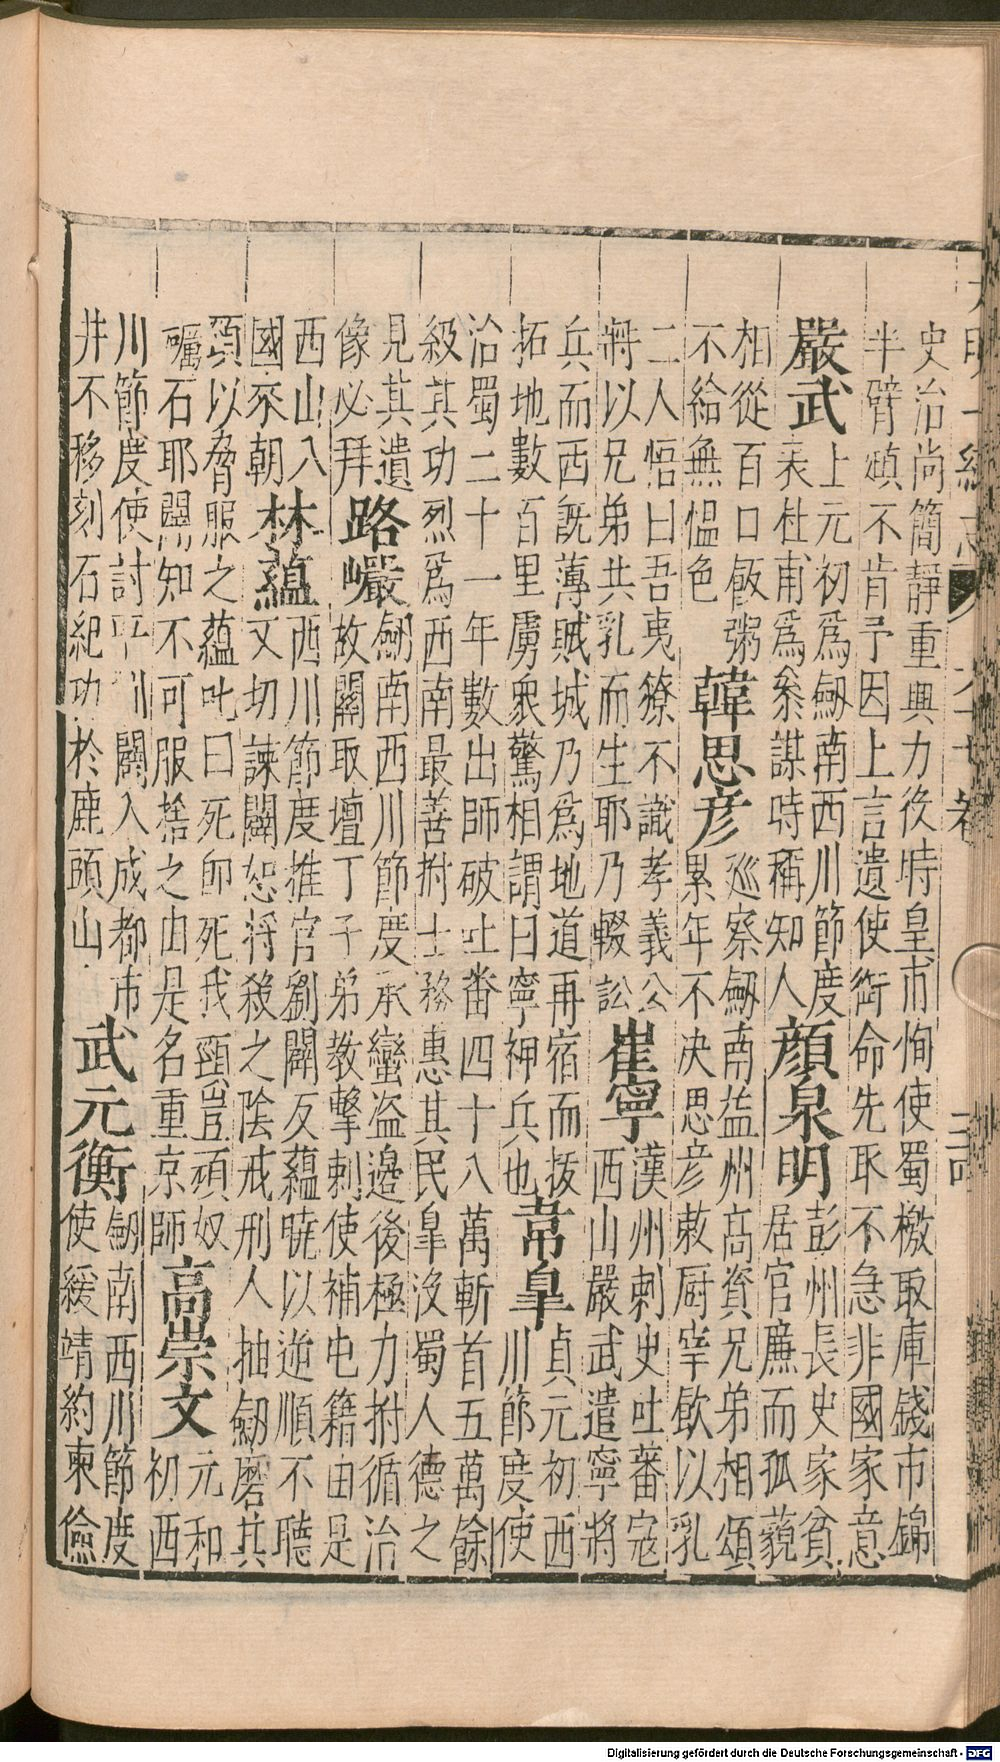 大明一統志 六十七卷
史治尚簡靜重興力役時皇甫恂使蜀檄取庫錢市錦
半臂頲不肯予因上言遺使銜命先取不急非國家意
嚴武
上元初爲劒南西川節度
表杜甫爲叅謀時稱知人
顔泉明
彭州長史家貧
居官廉而孤藐
相從百口飯粥
不給無愠色
韓思彥
廵察劒南益州高資兄弟相頌
累年不决思彥敕厨宰飲以乳
二人悟曰吾夷獠不識孝義公
將以兄弟共乳而生耶乃輟訟
崔寧
漢州刺史吐蕃寇
西山嚴武遣寧將
兵而西旣薄賊城乃爲地道再宿而拔
拓地數百里虜衆驚相謂曰寧神兵也
韋皐
貞元初西
川節度使
治蜀二十一年數出師破吐番四十八萬斬首五萬餘
級其功烈爲西南最善拊士務惠其民皐沒蜀人德之
見其遺
像必拜
路巗
劒南西川節度承蠻盗邊後極力拊循治
故關取壇丁子弟教擊刺使補屯籍由是
西山八
國來朝
林蘊
西川節度推官劉闢反蘊曉以逆順不聽
又切諫闢怒将殺之陰戒刑人抽劒磨其
頸以脅服之蘊叱曰死即死我頸豈頑奴
礪石耶闢知不可服捨之由是名重京師
高崇文
元和
初西
川節度使討平 闢入成都市
井不移刻石紀功於鹿頭山
武元衡
劒南西川節度
使緩靖約束儉
Digitalisierung gefördert durch die Deutsche Forschungsgemeinschaft - DFG